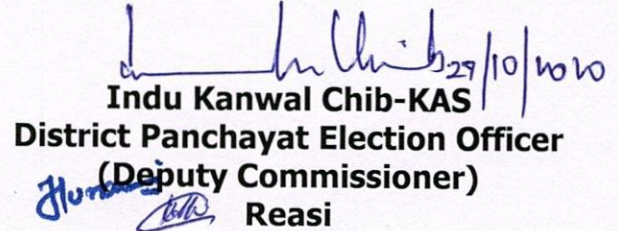 29/10/2020
Indu Kanwal Chib-KAS
District Panchayat Election Officer
(Deputy Commissioner)
Reasi